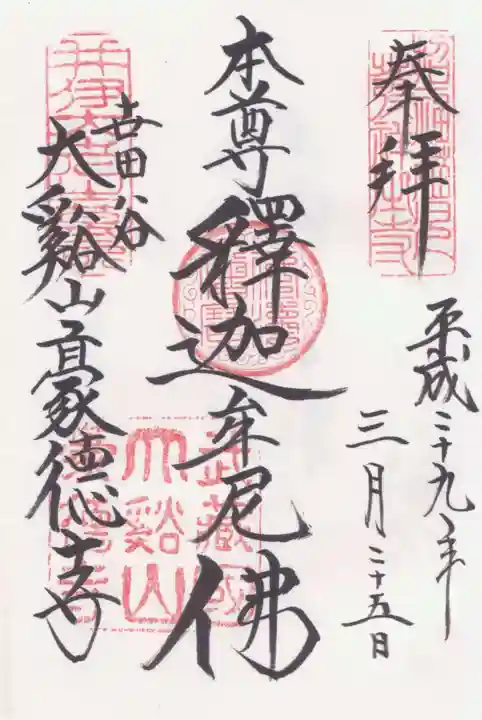 奉拝
平成二十九年
三月二十五日
本尊釋迦牟尼佛
世田谷
大谿山豪德寺
武藏國
大谿山
豪德寺